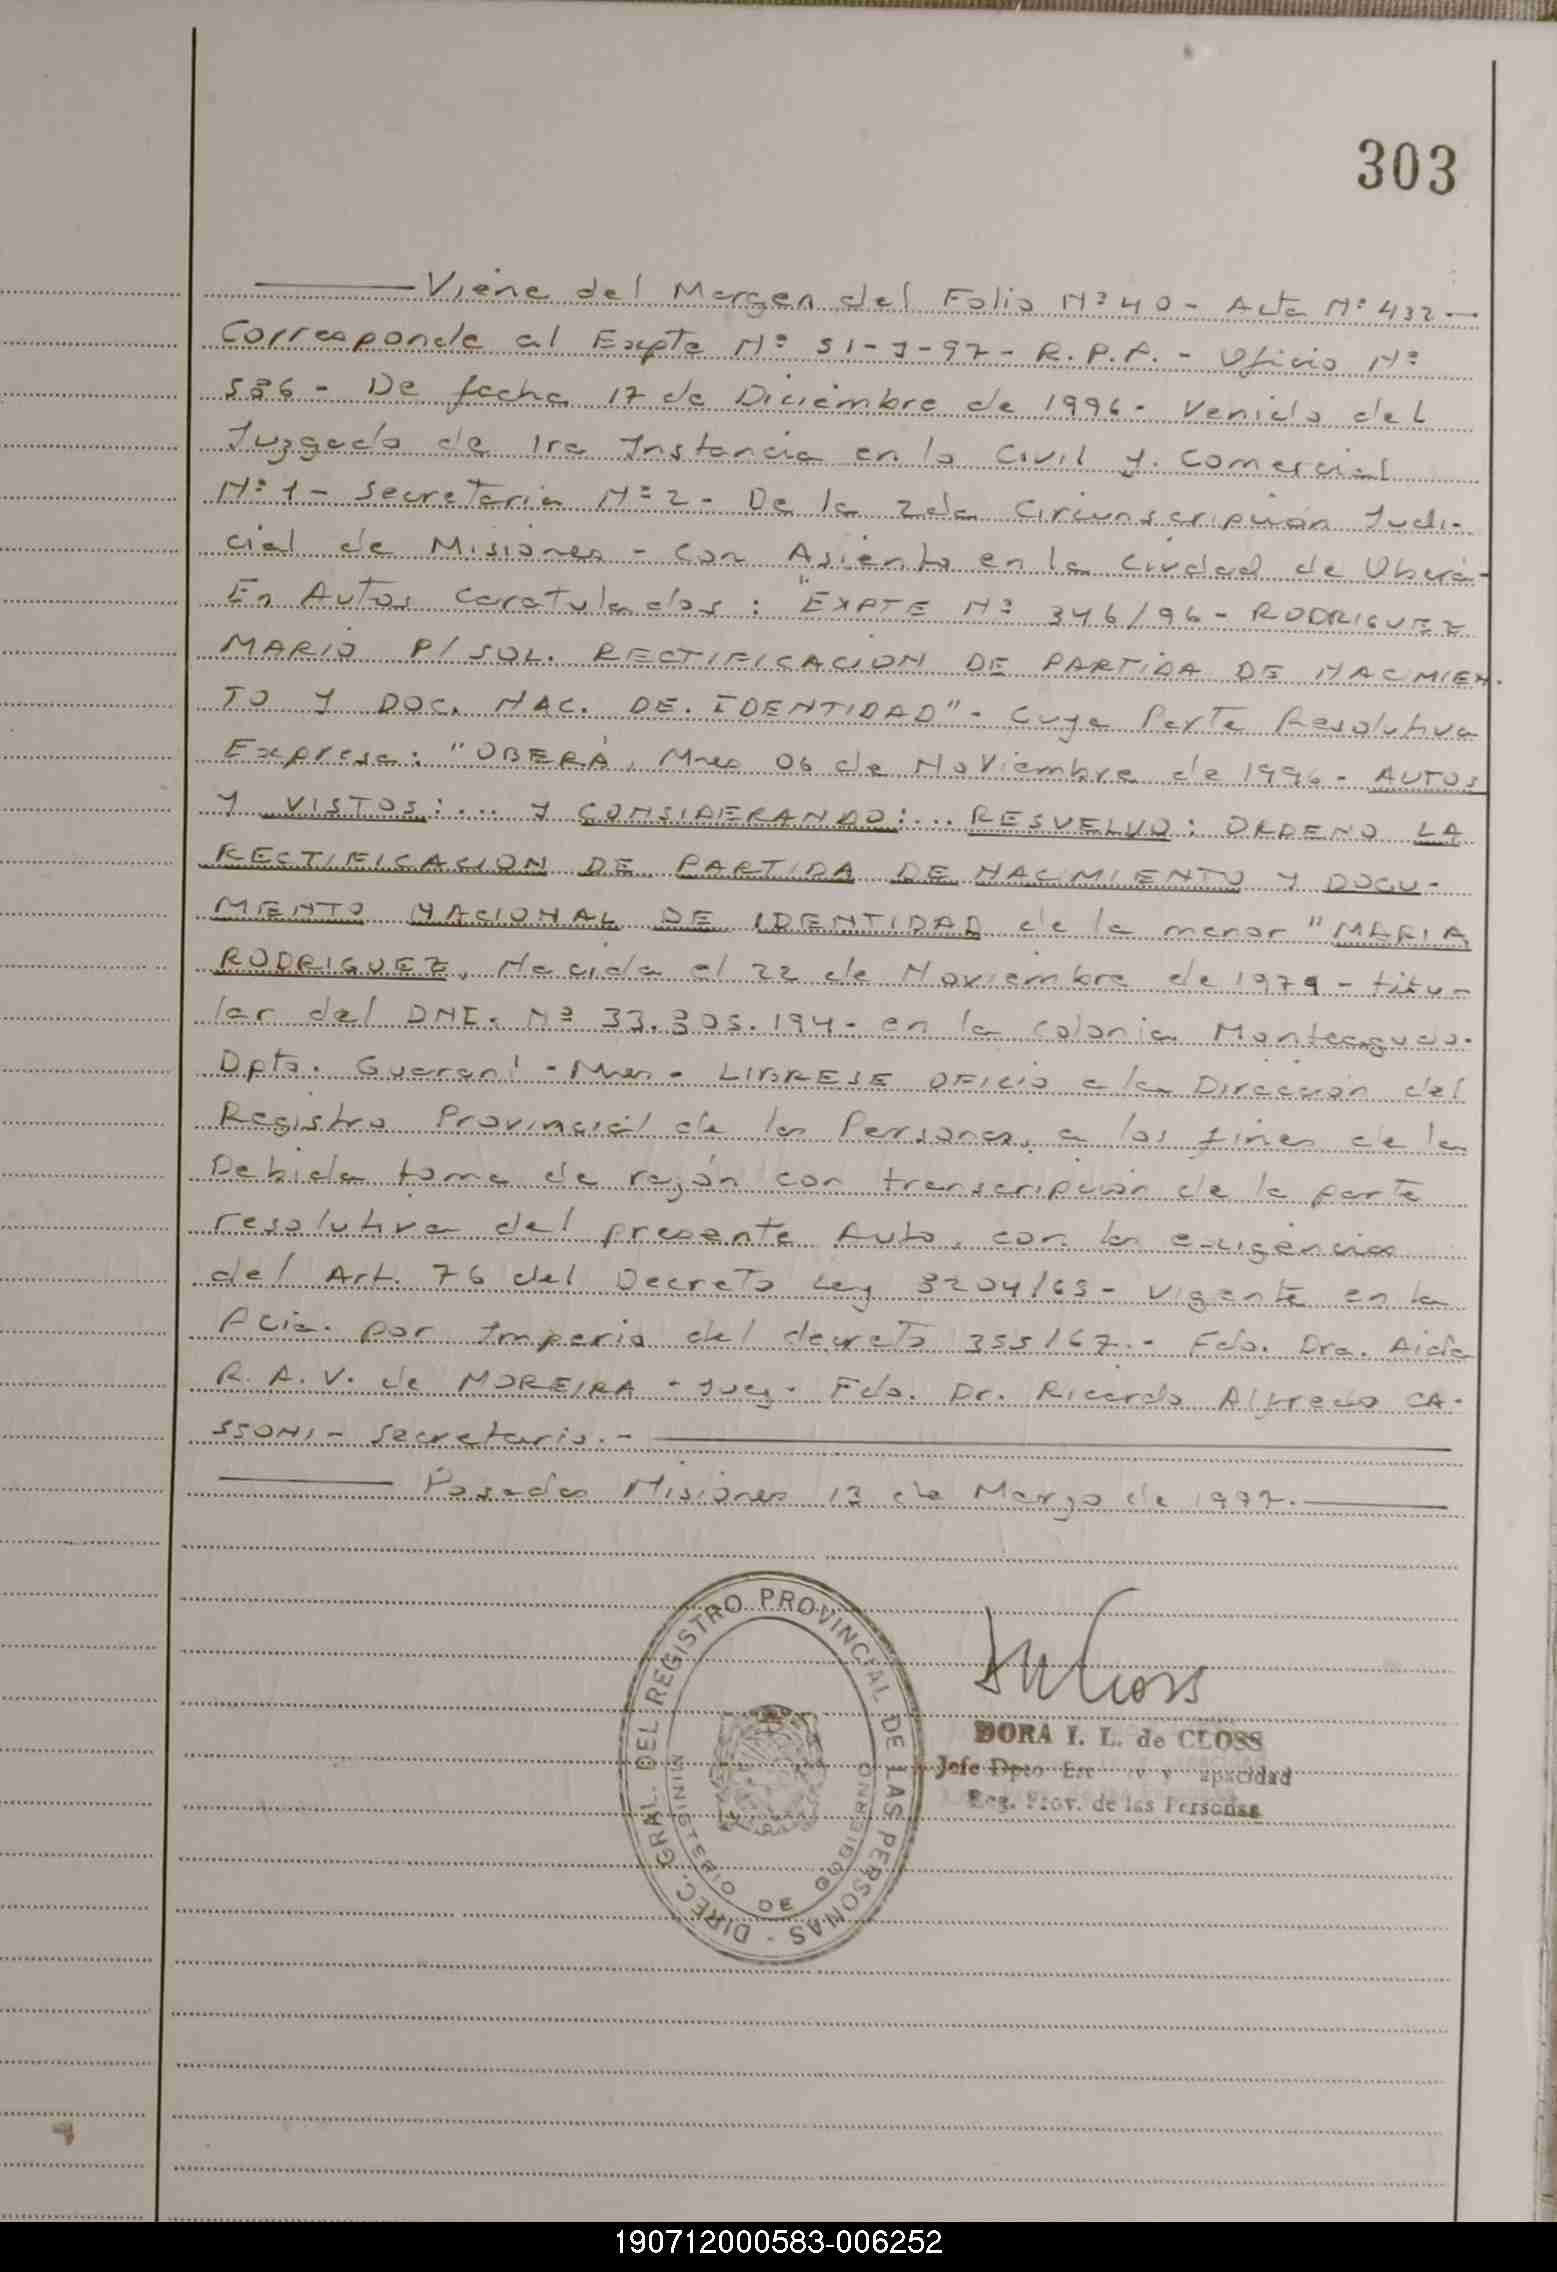 303
Viene del Margen del Folio Nº 40 - Acta Nº 432 -
Corresponde al Expte Nº 51-J-97 - R.P.P. - Oficio Nº
586 - De fecha 17 de Diciembre de 1996 - Venido del
Juzgado de 1ra Instancia en lo Civil y Comercial
Nº 1 - Secretaria Nº 2 - De la 2da Circunscripción Judi-
cial de Misiones - con Asiento en la Ciudad de Oberá -
En Autos caratulados: "EXPTE Nº 346/96 - RODRIGUEZ
MARIO P/ SOL. RECTIFICACION DE PARTIDA DE NACIMIEN-
TO Y DOC. NAC. DE IDENTIDAD" - Cuya Parte Resolutiva
Expresa: "OBERÁ, Mnes 06 de Noviembre de 1996 - AUTOS
Y VISTOS:... Y CONSIDERANDO:... RESUELVO: ORDENO LA
RECTIFICACION DE PARTIDA DE NACIMIENTO Y DOCU-
MENTO NACIONAL DE IDENTIDAD de la menor "MARIA
RODRIGUEZ, Nacida el 22 de Noviembre de 1979 - titu-
lar del DNI. Nº 33.305.194 - en la colonia Monteagudo -
Dpto. Guaraní - Mnes - LIBRESE OFICIO a la Dirección del
Registro Provincial de las Personas, a los fines de la
Debida toma de razón con transcripción de la parte
resolutiva del presente Auto, con las exigencias
del Art. 76 del Decreto Ley 8204/63 - vigente en la
Pcia. por Imperio del decreto 355/67. - Fdo. Dra. Aida
R. A. V. de MOREIRA - Juez - Fdo. Dr. Ricardo Alfredo CA-
SSONI - Secretario. -
Posadas Misiones 13 de Marzo de 1997.
DIREC. GRAL. DEL REGISTRO PROVINCIAL DE LAS PERSONAS -
MINISTERIO DE GOBIERNO
DORA I. L. de CLOSS
Jefe Dpto
Reg. Prov. de las Personas
190712000583-006252